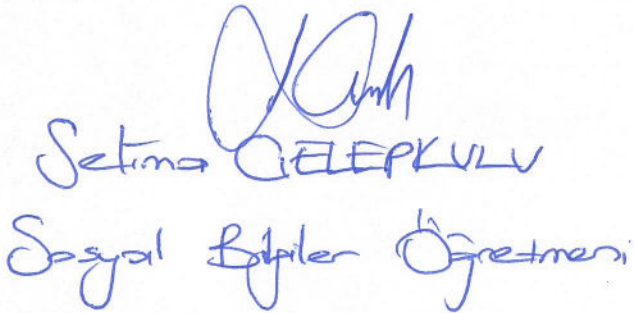 Setima GELEPKULU
Sosyal Bilgiler Öğretmeni